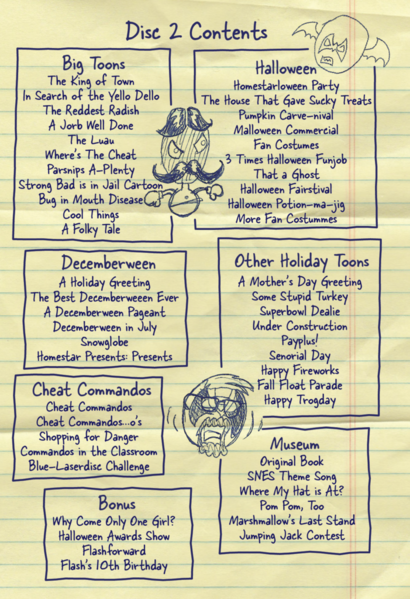 Disc 2 Contents
Big Toons
The King of Town
In Search of the Yello Dello
The Reddest Radish
A Jorb Well Done
The Luau
Where's The Cheat
Parsnips A-Plenty
Strong Bad is in Jail Cartoon
Bug in Mouth Disease
Cool Things
A Folky Tale
Halloween
Homestarloween Party
The House That Gave Sucky Treats
Pumpkin Carve-nival
Malloween Commercial
Fan Costumes
3 Times Halloween Funjob
That a Ghost
Halloween Fairstival
Halloween Potion-ma-jig
More Fan Costummes
Decemberween
A Holiday Greeting
The Best Decemberweeen Ever
A Decemberween Pageant
Decemberween in July
Snowglobe
Homestar Presents: Presents
Other Holiday Toons
A Mother's Day Greeting
Some Stupid Turkey
Superbowl Dealie
Under Construction
Payplus!
Senorial Day
Happy Fireworks
Fall Float Parade
Happy Trogday
Cheat Commandos
Cheat Commandos
Cheat Commandos...o's
Shopping for Danger
Commandos in the Classroom
Blue-Laserdisc Challenge
Museum
Original Book
SNES Theme Song
Where My Hat is At?
Pom Pom, Too
Marshmallow's Last Stand
Jumping Jack Contest
Bonus
Why Come Only One Girl?
Halloween Awards Show
Flashforward
Flash's 10th Birthday